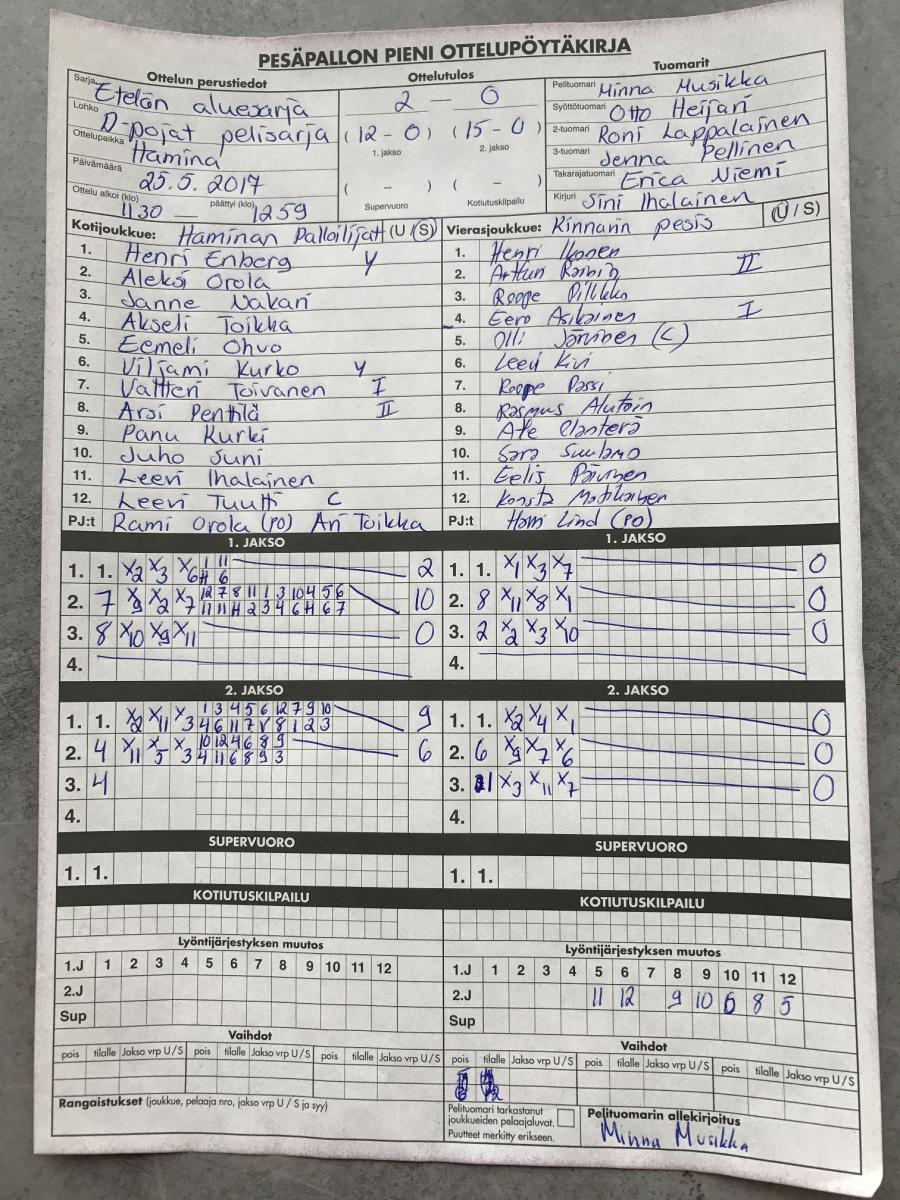 PESÄPALLON PIENI OTTELUPÖYTÄKIRJA
Ottelun perustiedot
Sarja Etelän aluesarja
Lohko D-pojat pelisarja
Ottelupaikka Hamina
Päivämäärä 25.5.2017
Ottelu alkoi (klo) 1130 — päättyi (klo) 1259
Ottelutulos
2 — 0
(12-0) (15-0)
1. jakso 2. jakso
( – ) ( – )
Supervuoro Kotiutuskilpailu
Tuomarit
Pelituomari Minna Musikka
Syöttötuomari Otto Heijari
2-tuomari Roni Lappalainen
3-tuomari Jenna Pellinen
Takarajatuomari Erica Niemi
Kirjuri Sini Ihalainen
Kotijoukkue: Haminan Palloilijat (U/S)
1. Henri Enberg Y
2. Aleksi Orola
3. Janne Nakari
4. Akseli Toikka
5. Eemeli Ohvo
6. Viljami Kurko Y
7. Valtteri Toivanen I
8. Arsi Penttilä II
9. Panu Kurki
10. Juho Juni
11. Leevi Ihalainen
12. Leevi Tuutti C
PJ:t Rami Orola (PO) Ari Toikka
Vierasjoukkue: Kinnarin pesis (U/S)
1. Henri Ikonen
2. Artturi II
3. Roope Pilkko
4. Eero Asikainen I
5. Olli Järvinen (C)
6. Leevi Kivi
7. Roope Passi
8. Rasmus
9. Atte
10.
11. Eelis Päivinen
12. Konsta Matikainen
PJ:t Harri Lind (PO)
1. JAKSO
1. 1. X2 X3 X6 1 11 2
H 6
2. 7 X9 X2 X7 12 7 8 11 1 3 10 4 5 6 10
11 11 H 2 3 4 6 H 6 7
3. 8 X10 X9 X11 0
4.
1. JAKSO
1. 1. X1 X3 X7 0
2. 8 X11 X8 X1 0
3. 2 X2 X3 X10 0
4.
2. JAKSO
1. 1. X2 X11 X3 1 3 4 5 6 12 7 9 10 9
4 6 11 7 V 8 1 2 3
2. 4 X11 X5 X3 10 12 4 6 8 9 6
4 11 6 8 9 3
3. 4
4.
2. JAKSO
1. 1. X2 X4 X1 0
2. 6 X9 X7 X6 0
3. 11 X3 X11 X7 0
4.
SUPERVUORO
1. 1.
SUPERVUORO
1. 1.
KOTIUTUSKILPAILU
KOTIUTUSKILPAILU
Lyöntijärjestyksen muutos
1.J 1 2 3 4 5 6 7 8 9 10 11 12
2.J
Sup
Lyöntijärjestyksen muutos
1.J 1 2 3 4 5 6 7 8 9 10 11 12
2.J 11 12 9 10 6 8 5
Sup
Vaihdot
pois tilalle Jakso vrp U/S pois tilalle Jakso vrp U/S pois tilalle Jakso vrp U/S
Vaihdot
pois tilalle Jakso vrp U/S pois tilalle Jakso vrp U/S pois tilalle Jakso vrp U/S
Rangaistukset (joukkue, pelaaja nro, jakso vrp U / S ja syy)
Pelituomari tarkastanut
joukkueiden pelaajaluvat.
Puutteet merkitty erikseen.
Pelituomarin allekirjoitus
Minna Musikka